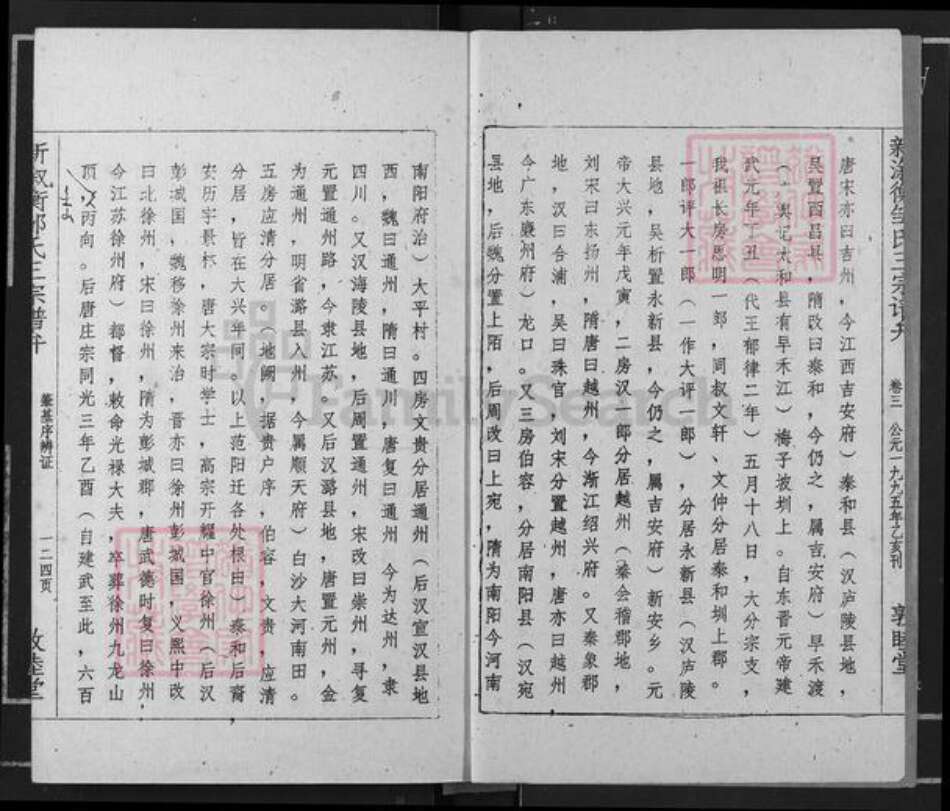 唐宋亦曰吉州，今江西吉安府）泰和县（汉庐陵县地，
吴置西昌县，隋改曰泰和，今仍之，属吉安府）早禾渡
（舆记太和县有早禾江）梅子坡圳上。自东晋元帝建
武元年丁丑（代王郁律二年）五月十八日，大分宗支，
我祖长房思明一郎，同叔文轩、文仲分居泰和圳上郡。
一郎评大一郎（一作大评一郎），分居永新县（汉庐陵
县地，吴析置永新县，今仍之，属吉安府）新安乡。元
帝大兴元年戊寅，二房汉一郎分居越州（秦会稽郡地，
刘宋曰东扬州，隋唐曰越州，今浙江绍兴府。又秦象郡
地，汉曰合浦，吴曰珠官，刘宋分置越州，唐亦曰越州
今广东廉州府）龙口。又三房伯容，分居南阳县（汉宛
县地，后魏分置上陌，后周改曰上宛，隋为南阳今河南
新 三宗谱 卷三 公元一九九五年乙亥刊 敦睦堂
南阳府治）大平村。四房文贵分居通州（后汉宣汉县地
西，魏曰通州，隋曰通川，唐复曰通州，今为达州，隶
四川。又汉海陵县地，后周置通州，宋改曰崇州，寻复
元置通州路，今隶江苏。又后汉潞县地，唐置元州，金
为通州，明省潞县入州，今属顺天府）白沙大河南田。
五房应清分居。（地阙，据贵户序，伯容，文贵，应清
分居，皆在大兴年间。以上范阳迁各处根由）泰和后裔
安历宇景标，唐大宗时学士，高宗开耀中官徐州（后汉
彭城国，魏移徐州来治，晋亦曰徐州彭城国，义熙中改
曰北徐州，宋曰徐州，隋为彭城郡，唐武德时复曰徐州
今江苏徐州府）都督，敕命光禄大夫，卒葬徐州九龙山
顶，丙向。后唐庄宗同光三年乙酉（自建武至此，六百
氏三宗谱 鉴基序辨证 一二四页 敦睦堂
FamilySearch